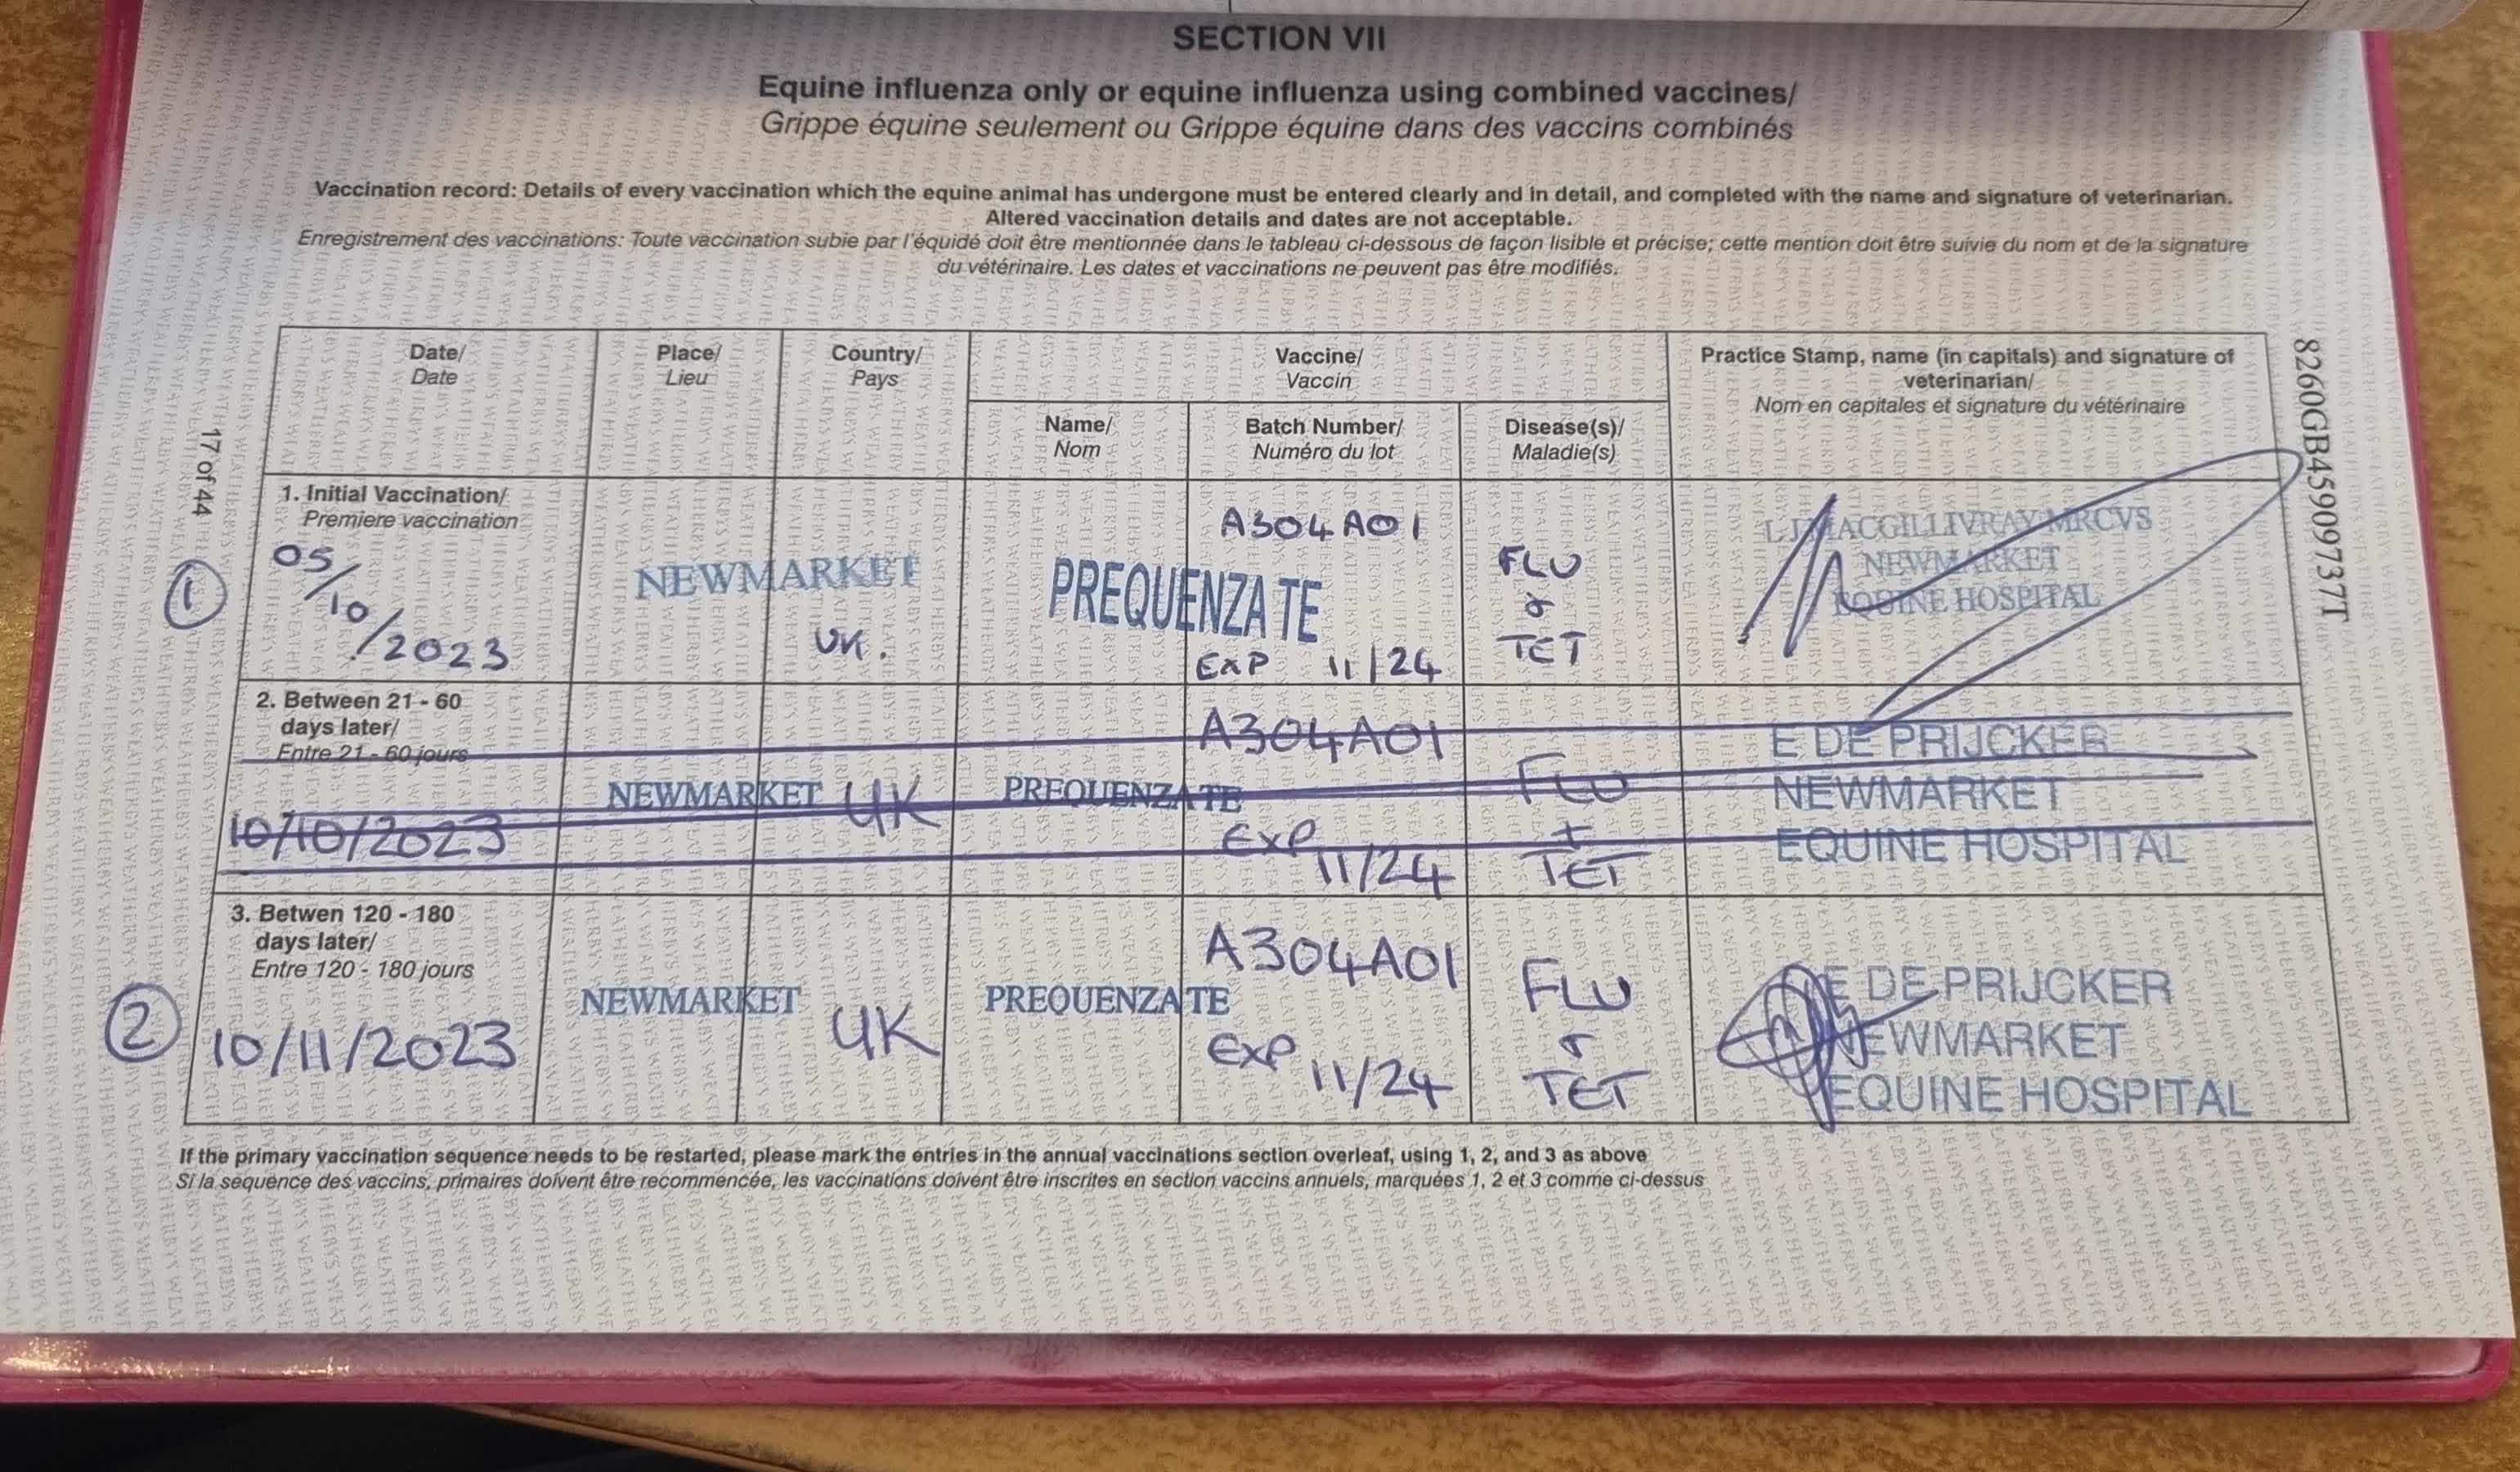 SECTION VII
Equine influenza only or equine influenza using combined vaccines/
Grippe équine seulement ou Grippe équine dans des vaccins combinés
Vaccination record: Details of every vaccination which the equine animal has undergone must be entered clearly and in detail, and completed with the name and signature of veterinarian.
Altered vaccination details and dates are not acceptable.
Enregistrement des vaccinations: Toute vaccination subie par l'équidé doit être mentionnée dans le tableau ci-dessous de façon lisible et précise; cette mention doit être suivie du nom et de la signature
du vétérinaire. Les dates et vaccinations ne peuvent pas être modifiés.
Date/
Date
Place/
Lieu
Country/
Pays
Vaccine/
Vaccin
Name/
Nom
Batch Number/
Numéro du lot
Disease(s)/
Maladie(s)
Practice Stamp, name (in capitals) and signature of
veterinarian/
Nom en capitales et signature du vétérinaire
17 of 44
8260GB45909737T
1
1. Initial Vaccination/
Premiere vaccination
05/
10
/2023
NEWMARKET
UK.
PREQUENZA TE
A304A01
EXP 11/24
FLU
&
TET
MACGILLIVRAY MRCVS
NEWMARKET
EQUINE HOSPITAL
2. Between 21 - 60
days later/
Entre 21 - 60 jours
10/10/2023
NEWMARKET
UK
PREQUENZA TE
A304A01
EXP
11/24
FLU
+
TET
E DE PRIJCKER
NEWMARKET
EQUINE HOSPITAL
2
3. Betwen 120 - 180
days later/
Entre 120 - 180 jours
10/11/2023
NEWMARKET
UK
PREQUENZA TE
A304A01
EXP
11/24
FLU
&
TET
E DE PRIJCKER
NEWMARKET
EQUINE HOSPITAL
If the primary vaccination sequence needs to be restarted, please mark the entries in the annual vaccinations section overleaf, using 1, 2, and 3 as above
Si la séquence des vaccins, primaires doivent être recommencée, les vaccinations doivent être inscrites en section vaccins annuels, marquées 1, 2 et 3 comme ci-dessus